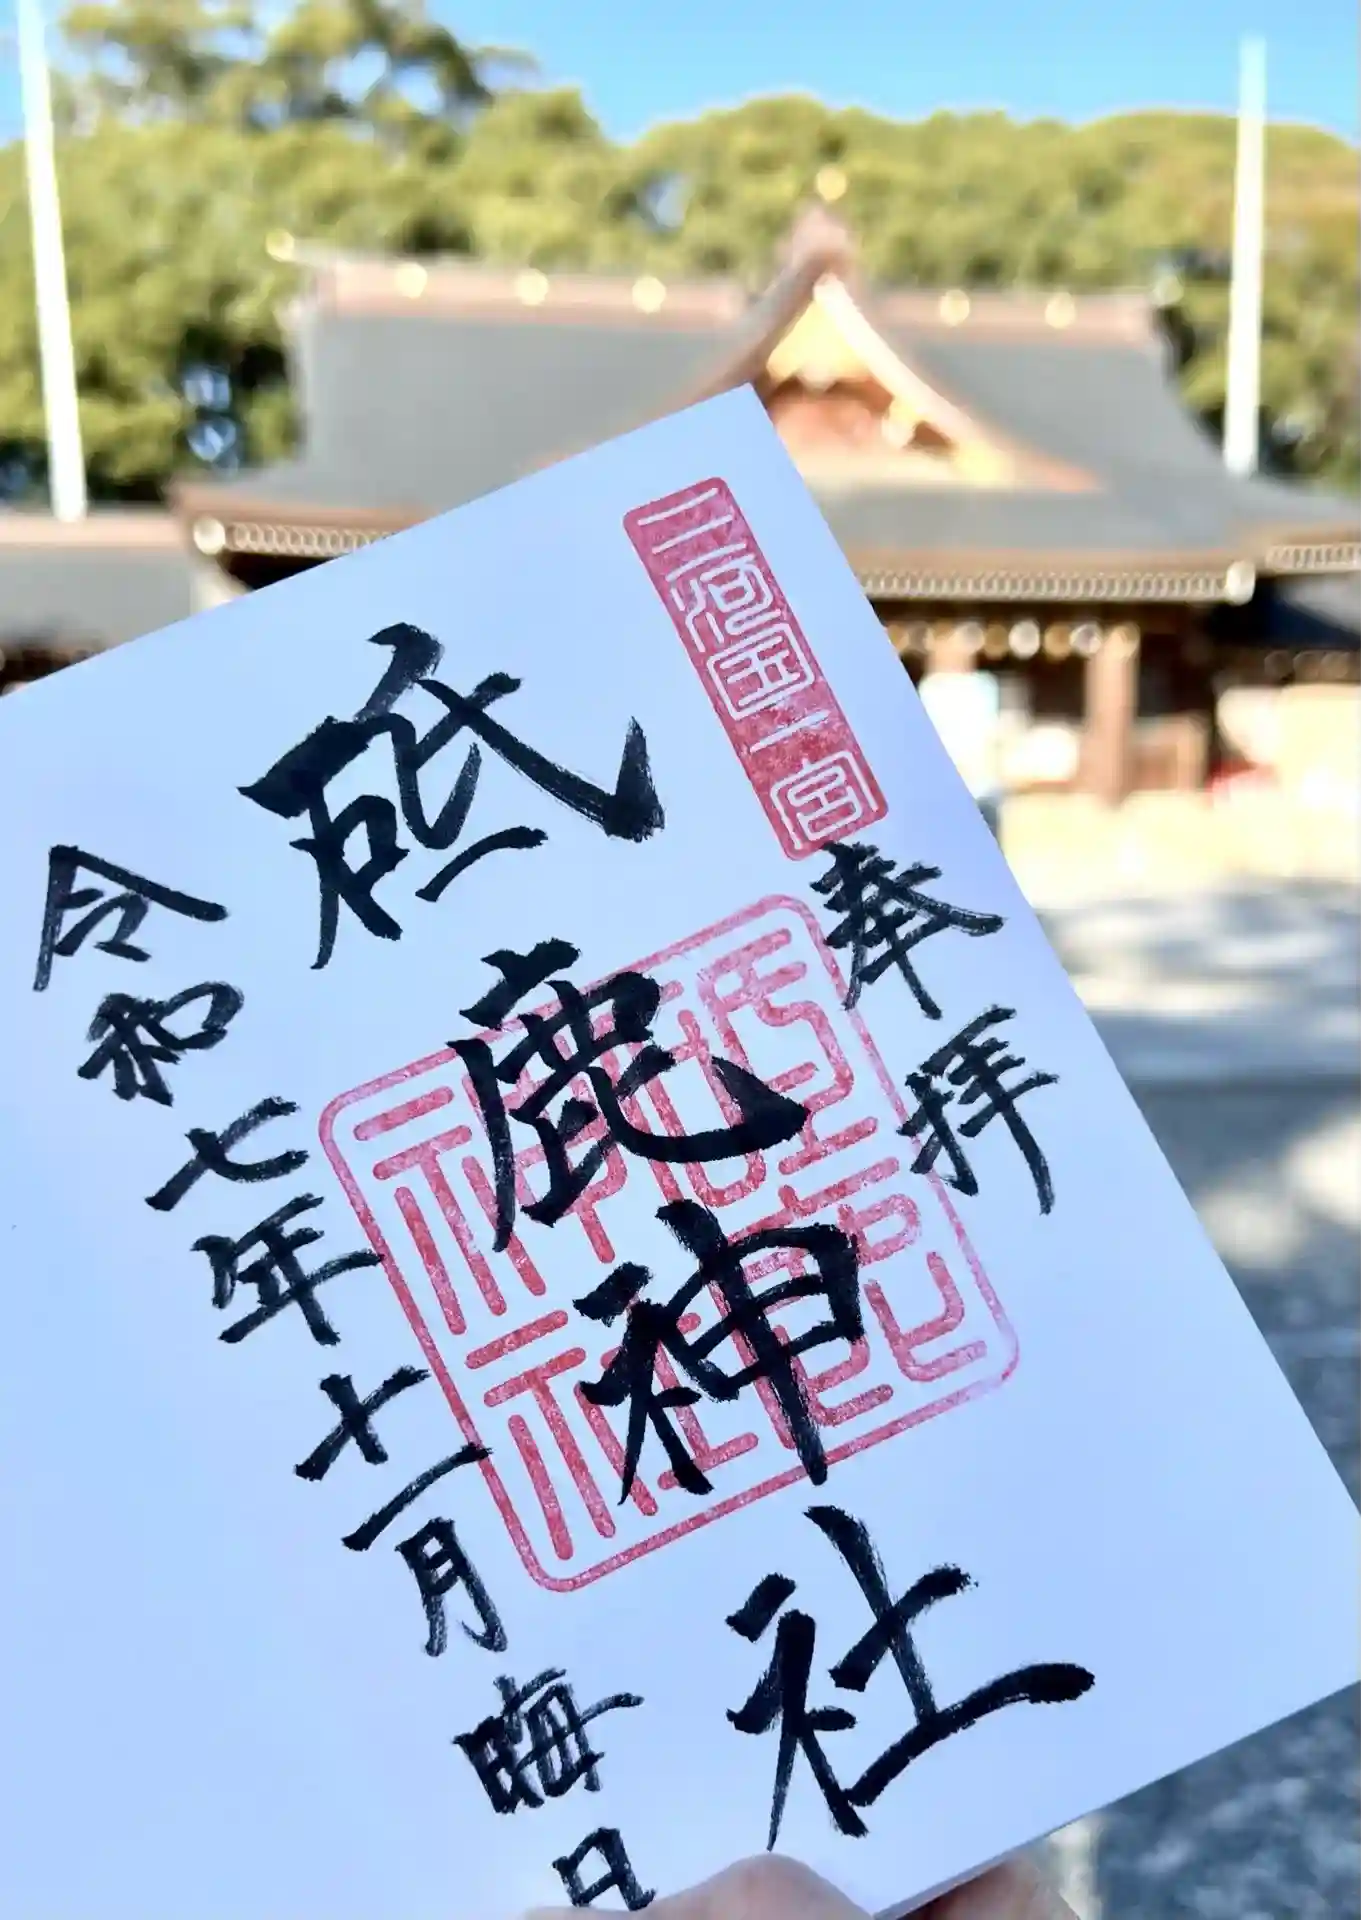 三河国一宮
奉拝
砥鹿神社
砥鹿神社
令和七年十一月晦日